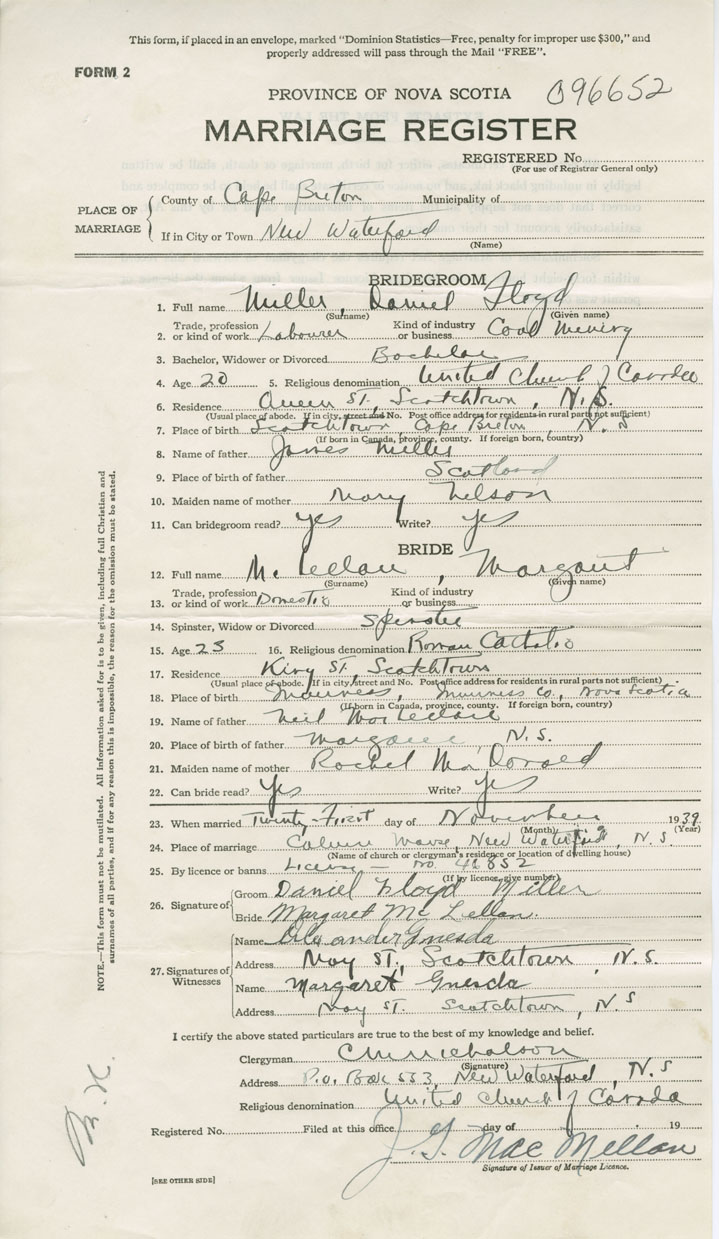 This form, if placed in an envelope, marked "Dominion Statistics—Free, penalty for improper use $300," and
properly addressed will pass through the Mail "FREE".
FORM 2
PROVINCE OF NOVA SCOTIA 096652
MARRIAGE REGISTER
REGISTERED No.
(For use of Registrar General only)
PLACE OF MARRIAGE
County of Cape Breton Municipality of
If in City or Town New Waterford
(Name)
BRIDEGROOM
1. Full name Miller, Daniel Floyd
(Surname) (Given name)
2. Trade, profession or kind of work Labourer Kind of industry or business Coal Mining
3. Bachelor, Widower or Divorced Bachelor
4. Age 20 5. Religious denomination United Church of Canada
6. Residence Queen St., Scotchtown, N.S.
(Usual place of abode. If in city, street and No. Post office address for residents in rural parts not sufficient)
7. Place of birth Scotchtown, Cape Breton, N.S
(If born in Canada, province, county. If foreign born, country)
8. Name of father James Miller
9. Place of birth of father Scotland
10. Maiden name of mother Mary Nelson
11. Can bridegroom read? yes Write? yes
BRIDE
12. Full name Mc Lellan, Margaret
(Surname) (Given name)
13. Trade, profession or kind of work Domestic Kind of industry or business
14. Spinster, Widow or Divorced Spinster
15. Age 23 16. Religious denomination Roman Catholic
17. Residence King St, Scotchtown
(Usual place of abode. If in city, street and No. Post office address for residents in rural parts not sufficient)
18. Place of birth Inverness, Inverness Co., Nova Scotia
(If born in Canada, province, county. If foreign born, country)
19. Name of father Neil
20. Place of birth of father N.S.
21. Maiden name of mother Rachel MacDonald
22. Can bride read? Yes Write? Yes
23. When married Twenty-First day of November 1939
(Month) (Year)
24. Place of marriage Manse, New Waterford, N.S.
(Name of church or clergyman's residence or location of dwelling house)
25. By licence or banns License No. 41852
(If by licence, give number)
26. Signature of
Groom Daniel Floyd Miller
Bride Margaret Mc Lellan.
27. Signatures of Witnesses
Name Gnesda
Address May St., Scotchtown, N.S.
Name Margaret Gnesda
Address May St. Scotchtown, N.S
I certify the above stated particulars are true to the best of my knowledge and belief.
Clergyman
(Signature)
Address P.O. Box 553, New Waterford, N.S
Religious denomination United Church of Canada
Registered No. Filed at this office day of 19
J. G. Mac Millan
Signature of Issuer of Marriage Licence.
[SEE OTHER SIDE]
NOTE.—This form must not be mutilated. All information asked for is to be given, including full Christian and
surnames of all parties, and if for any reason this is impossible, the reason for the omission must be stated.